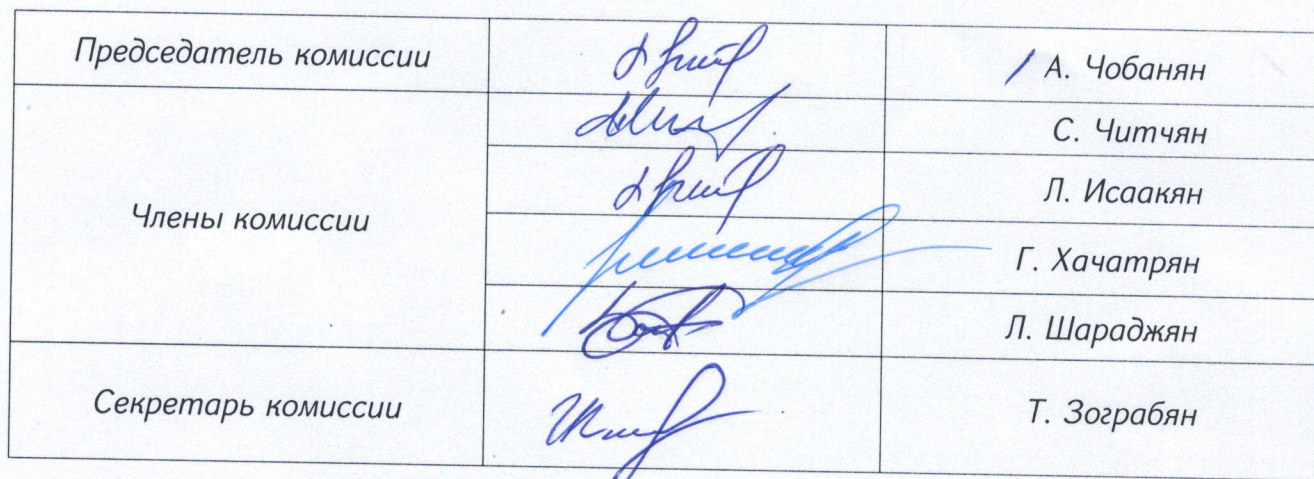 Председатель комиссии
/ А. Чобанян
С. Читчян
Члены комиссии
Л. Исаакян
Г. Хачатрян
Л. Шараджян
Секретарь комиссии
Т. Зограбян